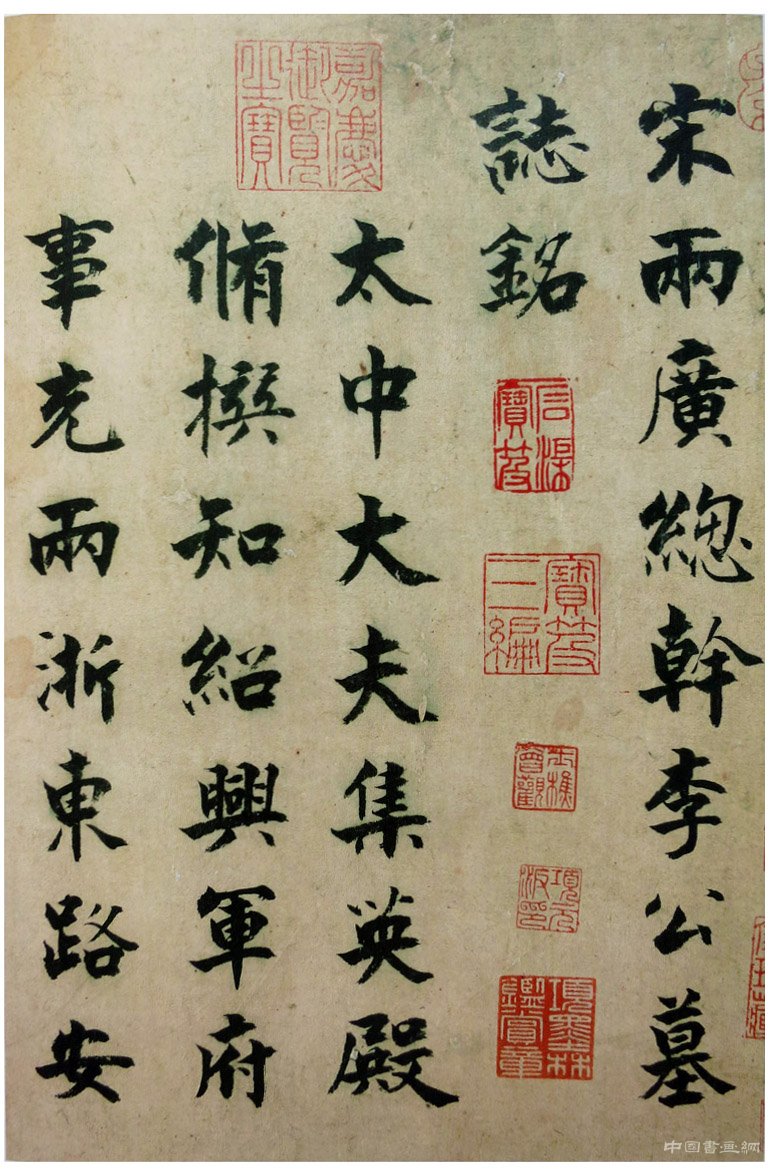 宋兩廣總幹李公墓
誌銘
太中大夫集英殿
脩撰知紹興軍府
事充兩浙東路安
嘉慶御覽之寶
寶笈三編
項墨林鑑賞章
中国書画網